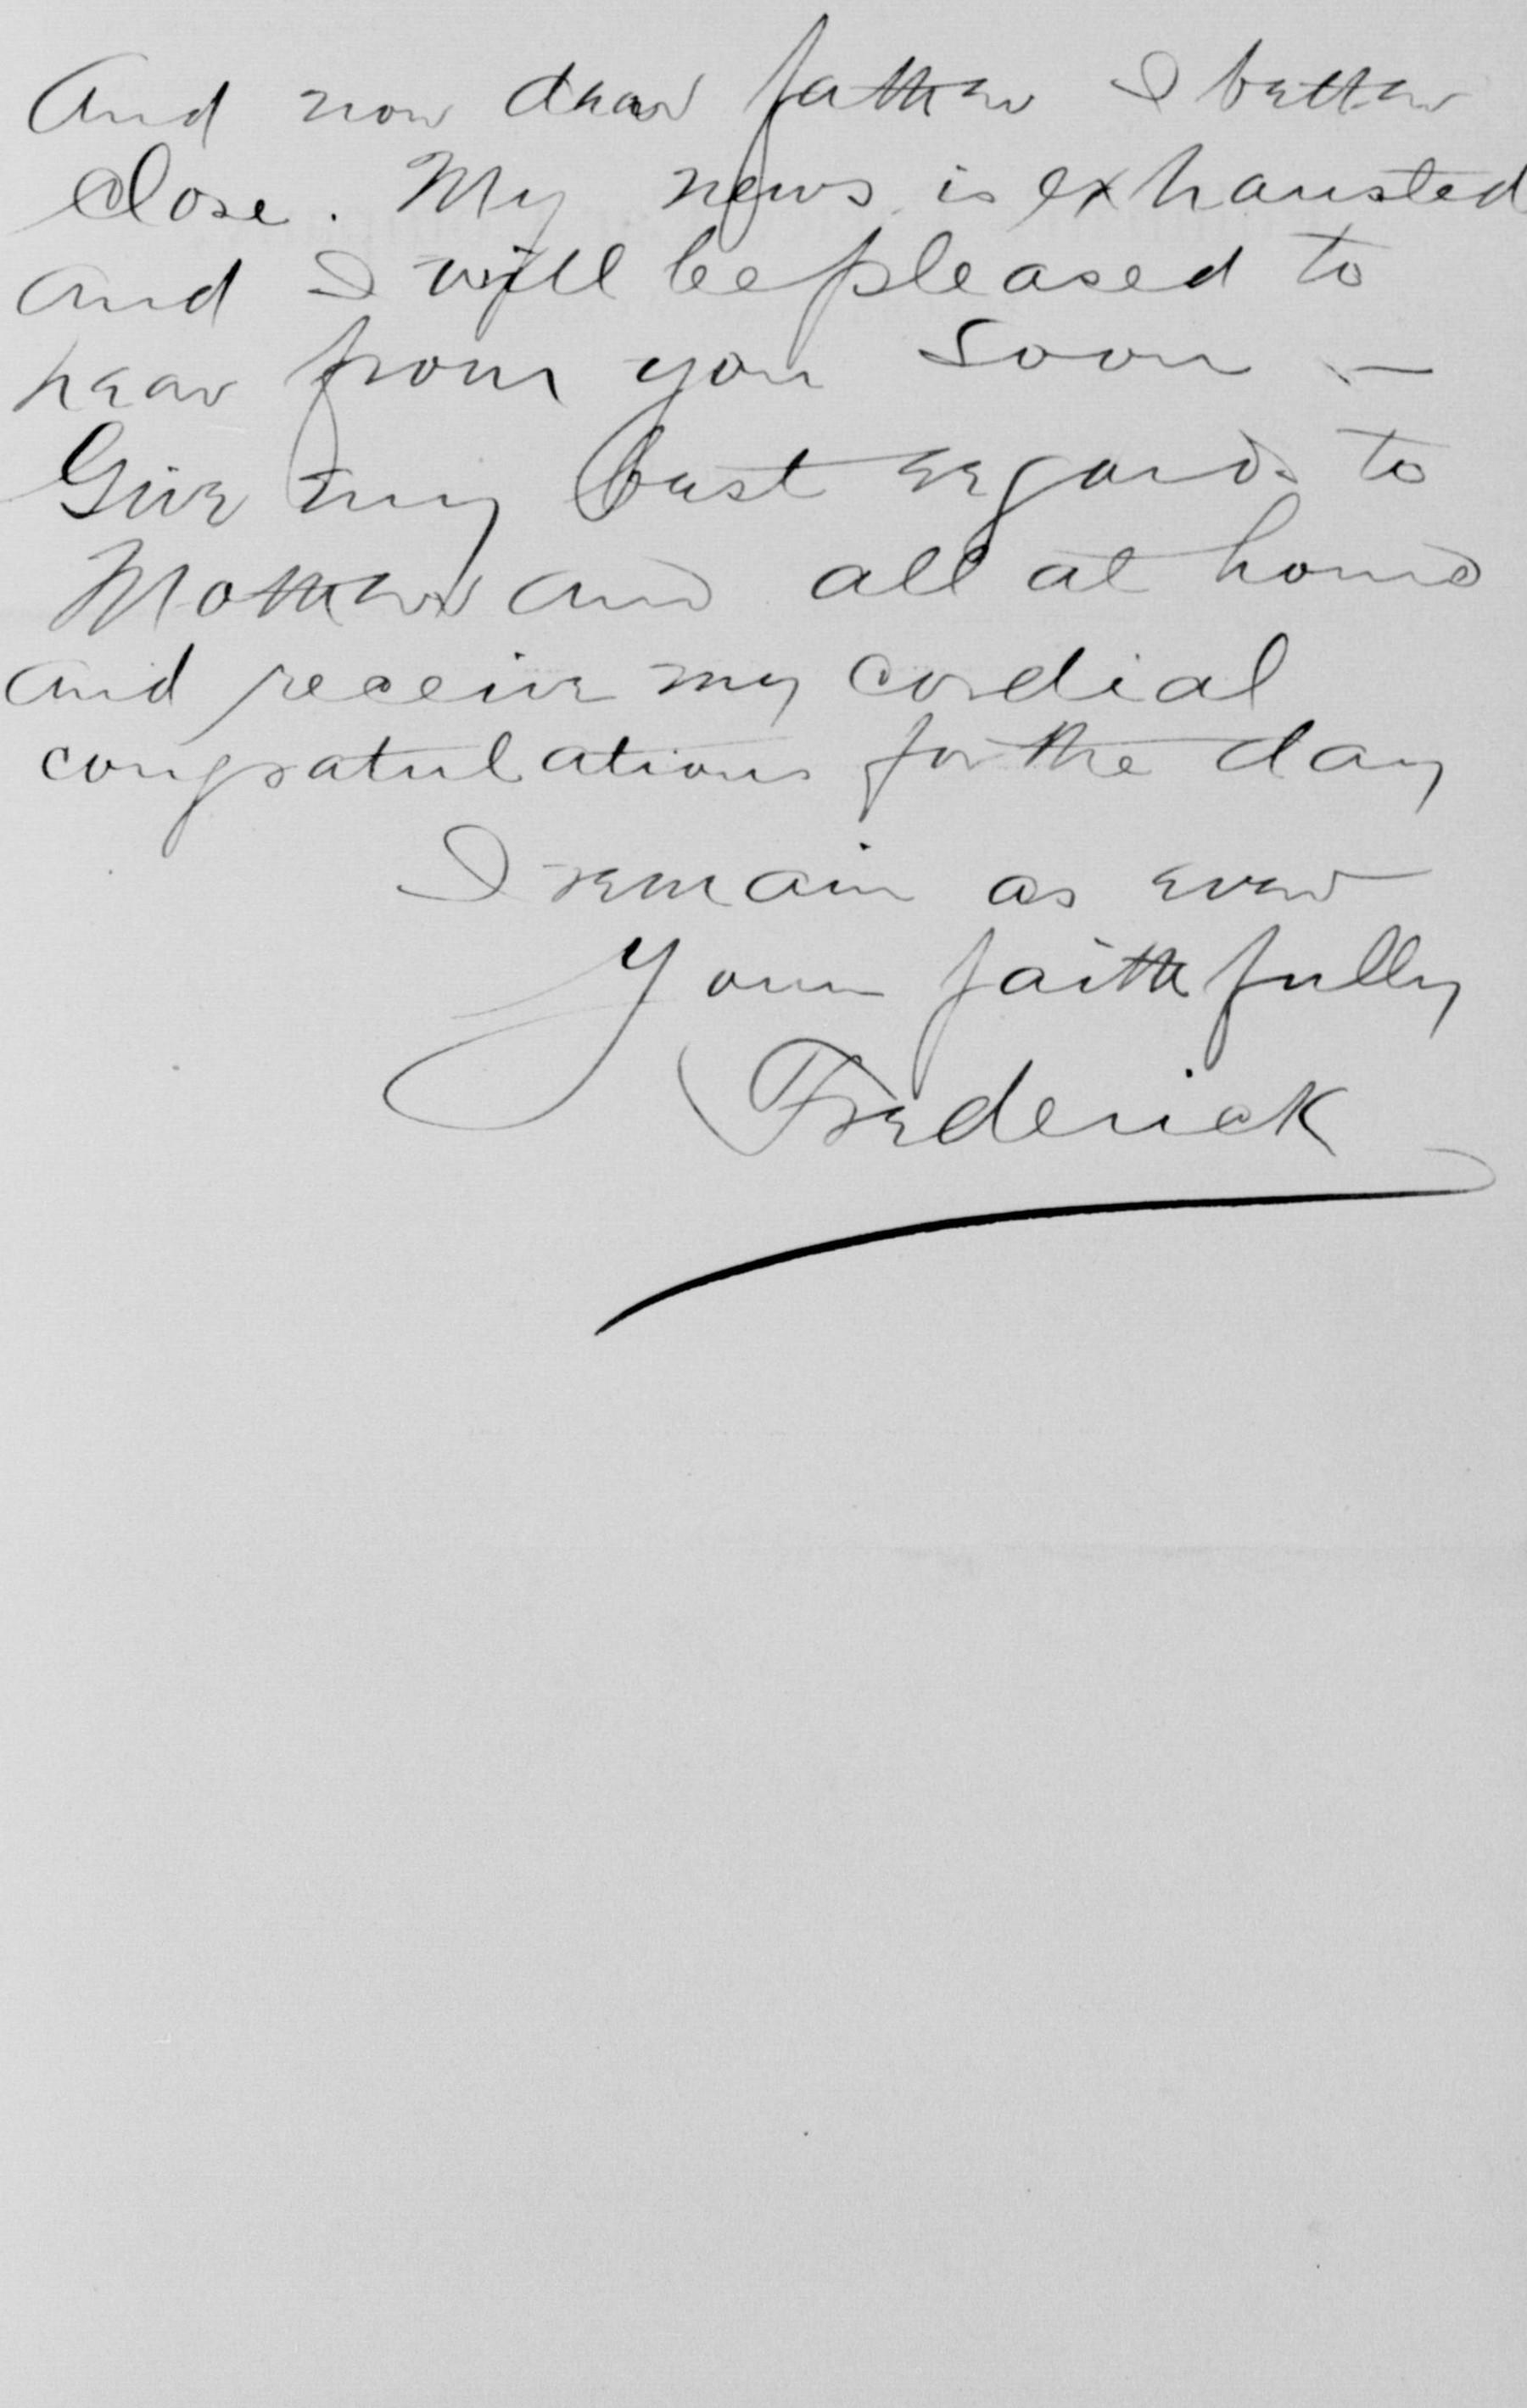 And now dear father I better
close. My news is exhausted
and I will be pleased to
hear from you soon —
Give my best regards to
Mother and all at home
and receive my cordial
congratulations for the day
I remain as ever
Your faithfully
Frederick